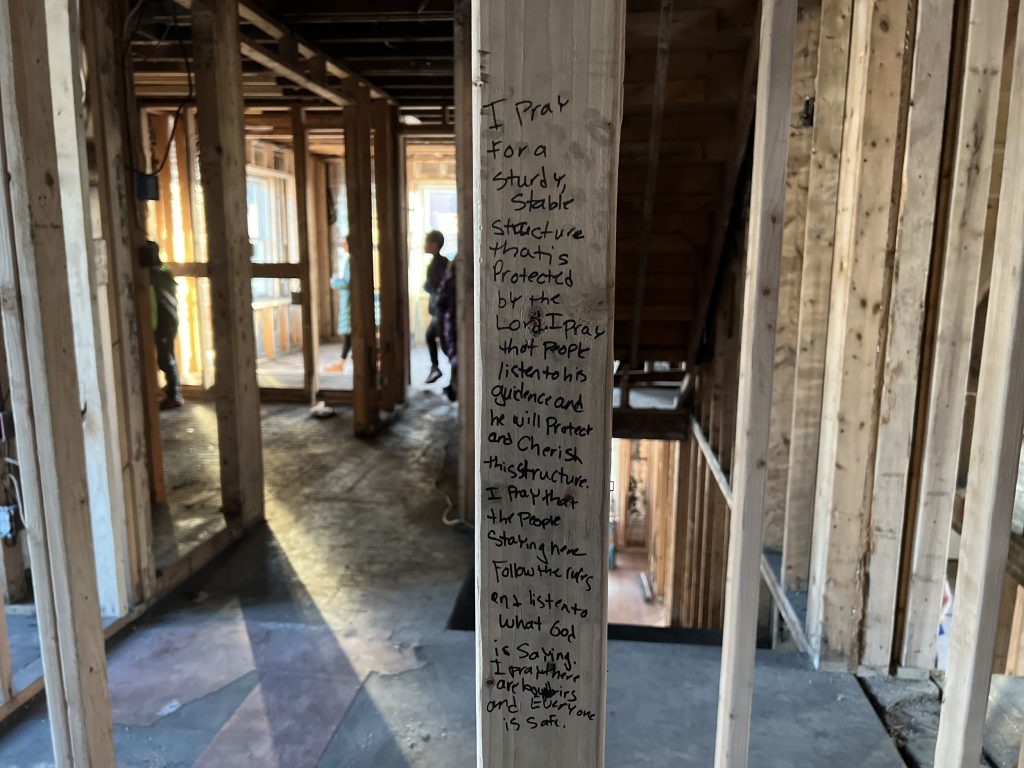 I pray
For a
Sturdy,
Stable
structure
that is
Protected
by the
Lord. I pray
that people
listen to his
guidence and
he will Protect
and Cherish
this structure.
I pray that
the People
Staying here
Follow the rules
and listen to
what God
is Saying.
I pray there
are
and Everyone
is safe.